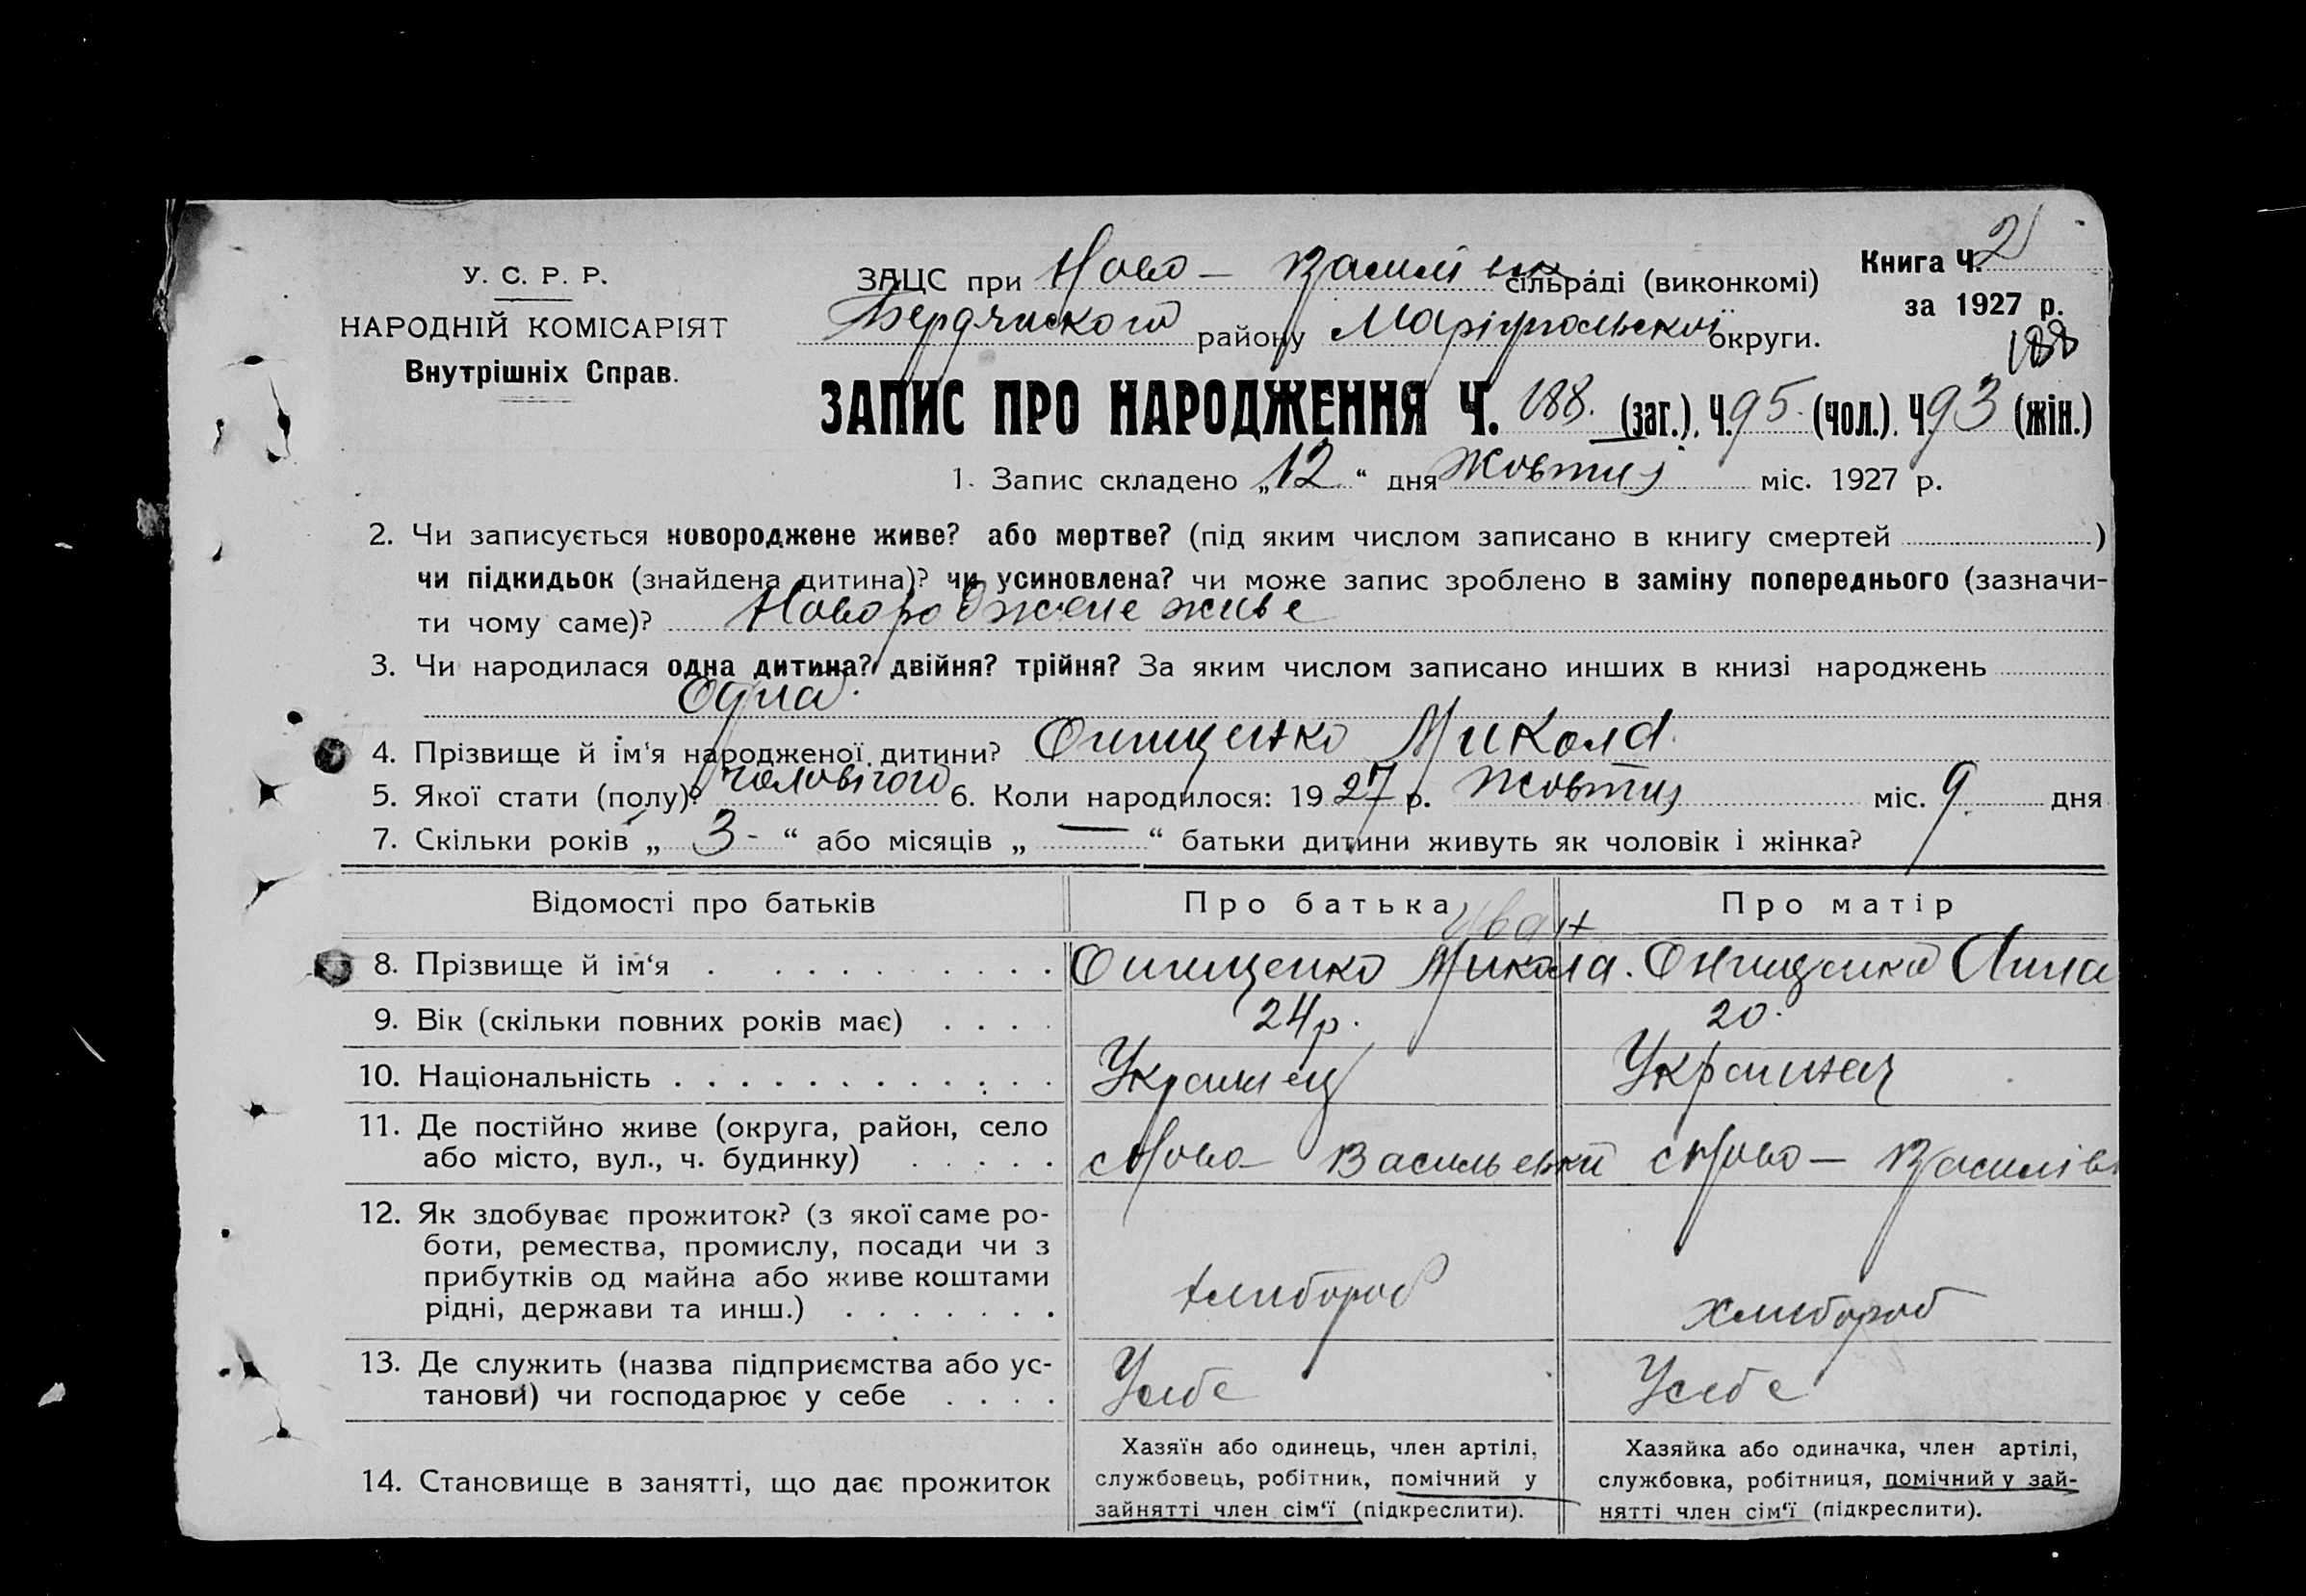 У. С. Р. Р.
НАРОДНІЙ КОМІСАРІЯТ
Внутрішніх Справ.
ЗАЦС при Ново — Василівск сільраді (виконкомі)
Бердянского району Маріупольскої округи.
Книга Ч. 2
за 1927 р.
188
ЗАПИС ПРО НАРОДЖЕННЯ Ч. 188. (заг.). Ч. 95. (чол.). Ч. 93 (жін.)
1. Запис складено „12“ дня Жовтня міс. 1927 р.
2. Чи записується новороджене живе? або мертве? (під яким числом записано в книгу смертей )
чи підкидьок (знайдена дитина)? чи усиновлена? чи може запис зроблено в заміну попереднього (зазначи-
ти чому саме)? Новороджене живе
3. Чи народилася одна дитина? двійня? трійня? За яким числом записано инших в книзі народжень
Одна.
4. Прізвище й ім‘я народженої дитини? Онищенко Микола.
5. Якої стати (полу)? чоловічого 6. Коли народилося: 1927 р. Жовтня міс. 9 дня
7. Скільки років „ 3 - “ або місяців „ — “ батьки дитини живуть як чоловік і жінка?
Відомості про батьків Про батька Про матір
Иван
8. Прізвище й ім‘я Онищенко Микола. Онищенко Анна
9. Вік (скільки повних років має) 24 р. 20.
10. Національність Украинец Украинка
11. Де постійно живе (округа, район, село
або місто, вул., ч. будинку) с Ново — Васильевки с Ново — Василів
12. Як здобуває прожиток? (з якої саме ро-
боти, ремества, промислу, посади чи з
прибутків од майна або живе коштами
рідні, держави та инш.) хлибороб хлибороб
13. Де служить (назва підприємства або ус-
танови) чи господарює у себе У себе У себе
14. Становище в занятті, що дає прожиток
Хазяїн або одинець, член артілі,
службовець, робітник, помічний у
зайнятті член сім‘ї (підкреслити).
Хазяйка або одиначка, член артілі,
службовка, робітниця, помічний у зай-
нятті член сім‘ї (підкреслити).